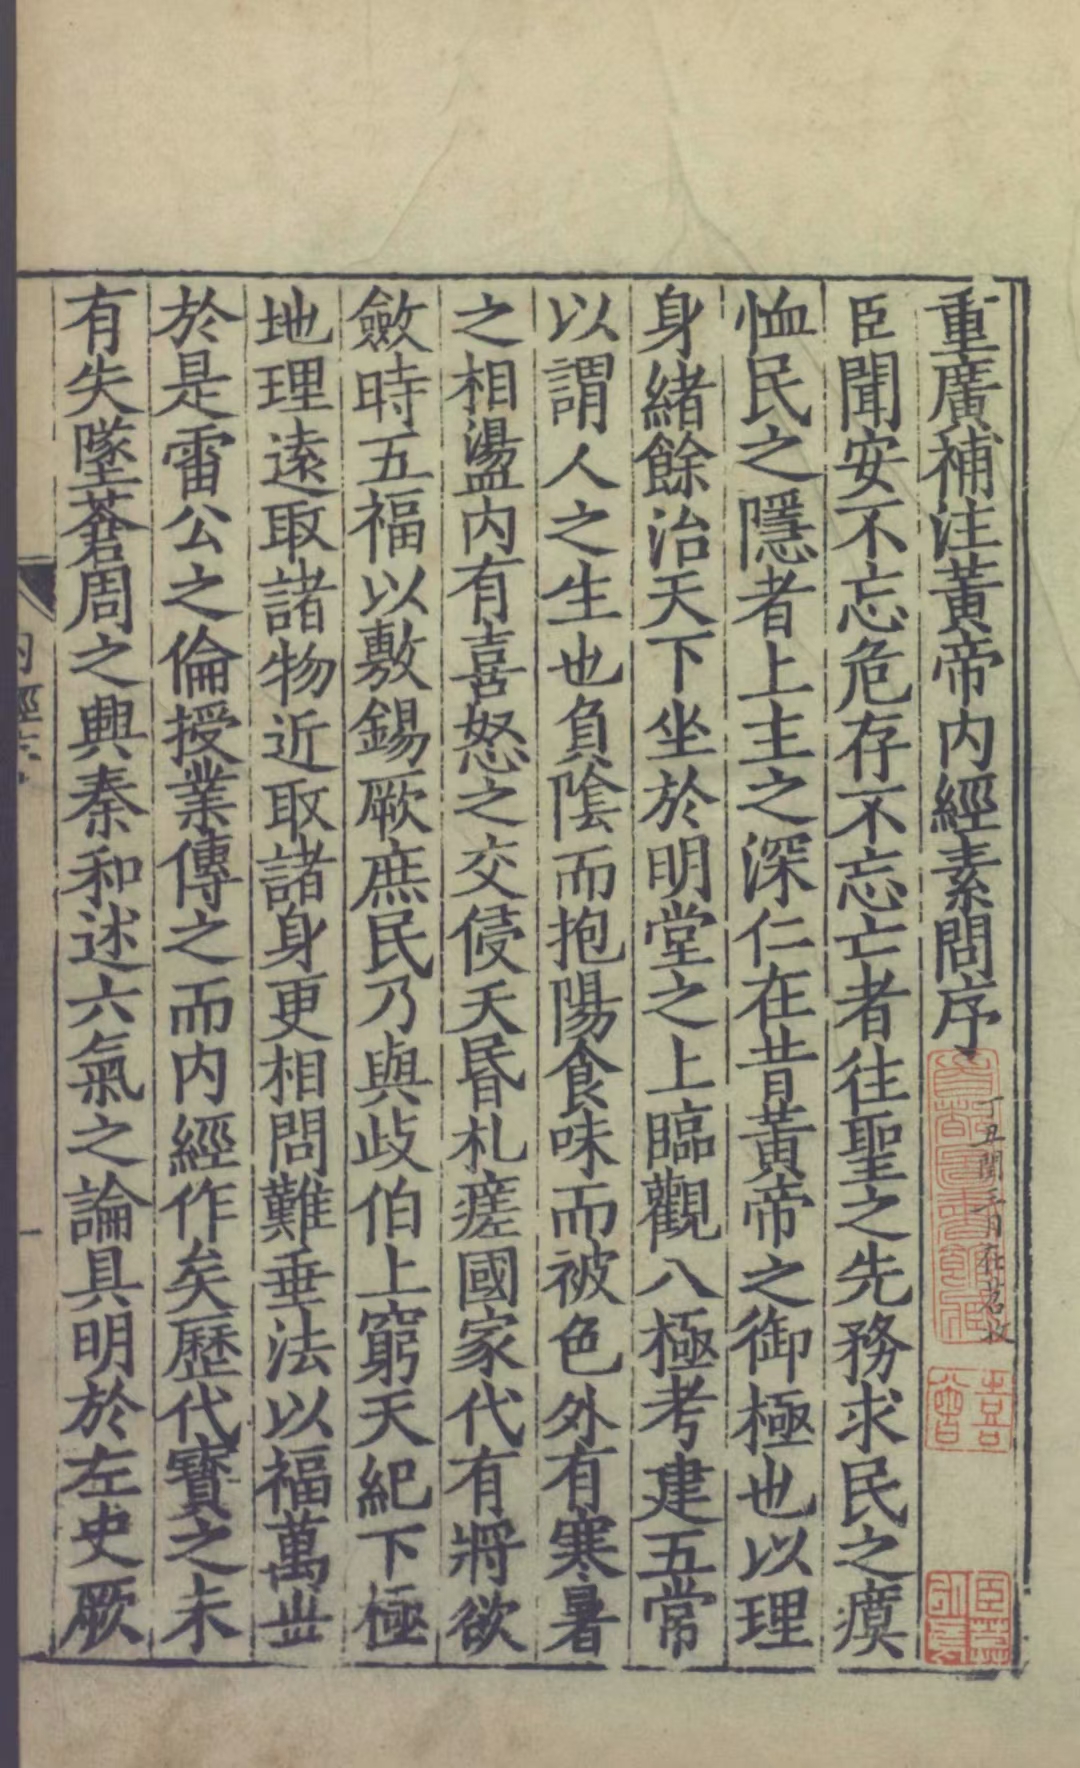 重廣補注黃帝內經素問序
臣聞安不忘危存不忘亡者往聖之先務求民之瘼
恤民之隱者上主之深仁在昔黃帝之御極也以理
身緒餘治天下坐於明堂之上臨觀八極考建五常
以謂人之生也負陰而抱陽食味而被色外有寒暑
之相盪內有喜怒之交侵夭昬札瘥國家代有將欲
斂時五福以敷錫厥庶民乃與歧伯上窮天紀下極
地理遠取諸物近取諸身更相問難垂法以福萬世
於是雷公之倫授業傳之而內經作矣歷代寶之未
有失墜蒼周之興秦和述六氣之論具明於左史厥
丁丑閏三月
喜曾
內經
一